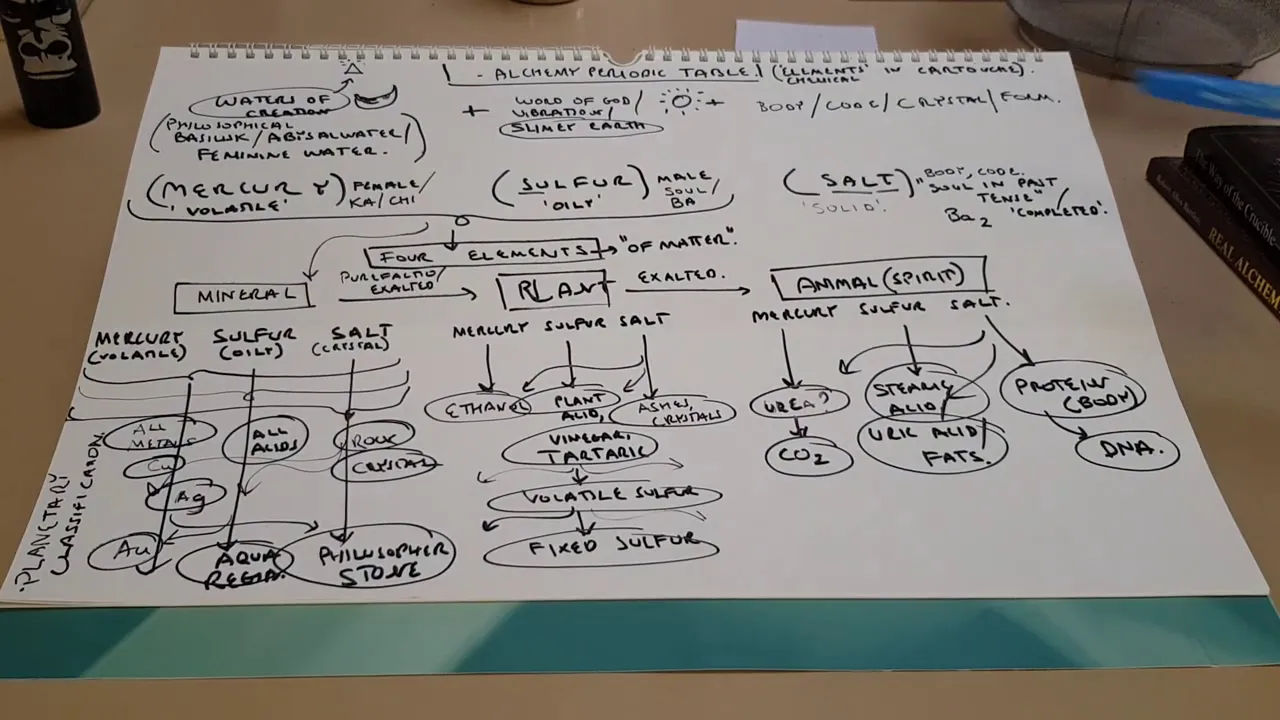 - ALCHEMY PERIODIC TABLE. ('ELEMENTS' IN CARTOUCHE).
CHEMICAL
WATERS OF
CREATION
(PHILOSOPHICAL
BASILISK/ABYSALWATER/
FEMININE WATER.)
+ WORD OF GOD/
VIBRATION/
SLIMEY EARTH
+ BODY/CODE/CRYSTAL/FORM.
(MERCURY) FEMALE/
'VOLATILE' KA/CHI
(SULFUR) MALE
'OILY' SOUL/
BA
(SALT) "BODY, CODE.
'SOLID'. "SOUL IN PAST
TENSE"/
Ba2 'COMPLETED'.
FOUR ELEMENTS → "OF MATTER".
MINERAL
EXALTED
PLANT
EXALTED.
ANIMAL (SPIRIT)
MERCURY SULFUR SALT
(VOLATILE) (OILY) (CRYSTAL)
MERCURY SULFUR SALT
MERCURY SULFUR SALT.
ALL
METALS
Cu
Ag
Au
ALL
ACIDS
AQUA
REGIA.
ROCK
CRYSTAL
PHILOSOPHER
STONE
ETHANOL
PLANT
ACID,
VINEGAR,
TARTARIC
VOLATILE SULFUR
FIXED SULFUR
ASHES,
CRYSTALS
UREA?
CO2
STEARIC
ACID/
URIC ACID/
FATS.
PROTEIN
(BODY)
DNA.
·PLANETARY
CLASSIFICATION.
The Way of the Crucible
REAL ALCHEM